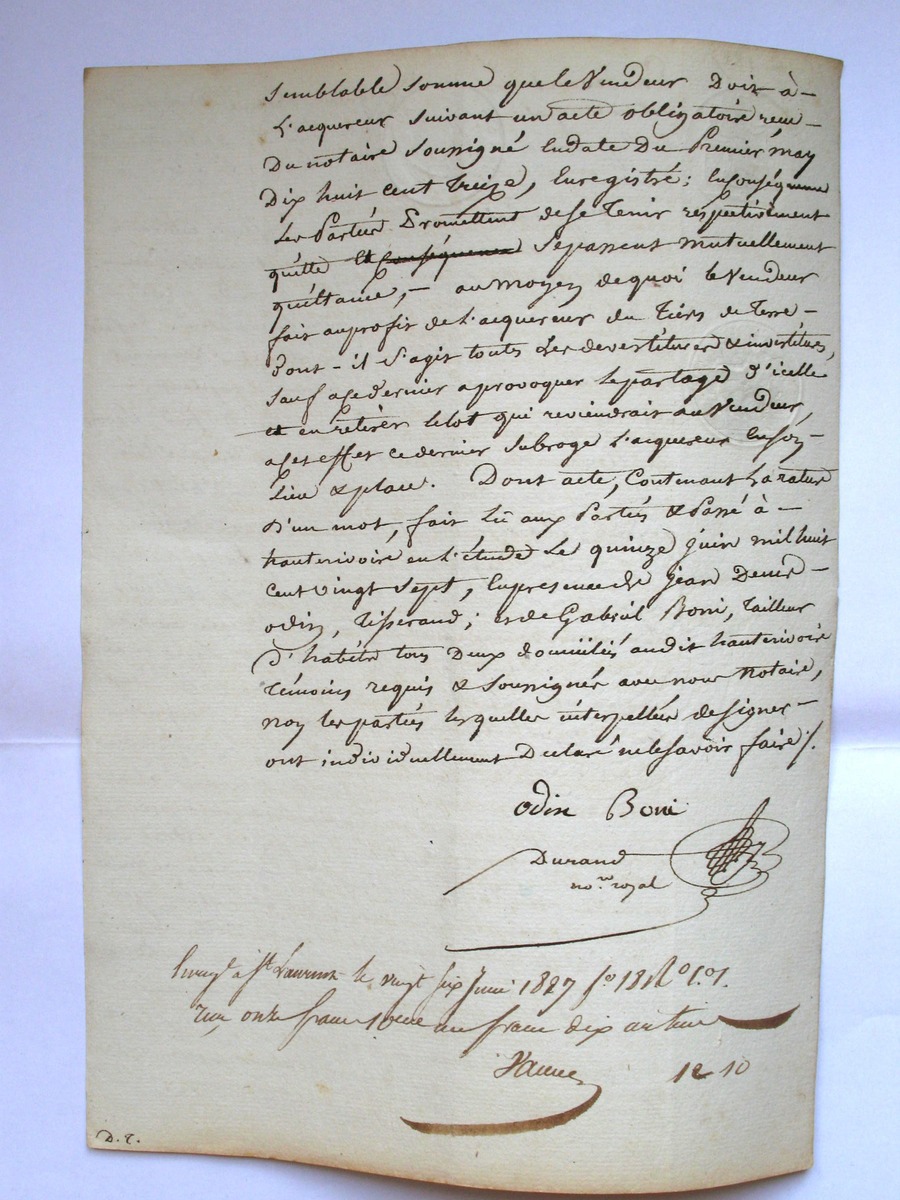 semblable somme que le Vendeur Doit à -
L'acquereur suivant un acte obligatoire recu -
Du notaire soussigné en date Du Premier may
Dix huit cent treize, Enregistré; En conséquence
Les Parties Promettent de se tenir respectivement
quitte et conséquence se passent mutuellement
quittance, - au moyen de quoi le Vendeur
fait au profit de l'acquereur du tiers de terre -
dont - il s'agit toutes les devestitures & investitures,
sauf a ce dernier a provoquer le partage d'icelle
et en retirer le lot qui reviendrait au Vendeur,
a cet effet ce dernier subroge l'acquereur en son -
Lieu & place. Dont acte, Contenant La rature
D'un mot, fait lû aux Parties & Passé à -
hauterivoire en l'étude Le quinze juin mil huit
cent vingt sept, En presence de jean Denis -
odin, Tisserand; et de Gabriel Boni, Tailleur
D'habits tous Deux domiciliés audit hauterivoire
témoins requis & soussignés avec nous Notaire,
non les parties lesquelles interpellées de signer -
ont individuellement Declaré ne le savoir faire /.
odin Boni
Durand
no.re royal
Enreg.é à St Laurent le vingt six Juin 1827 fo 181
reçu onze francs un franc dix centimes
12 10
D.T.